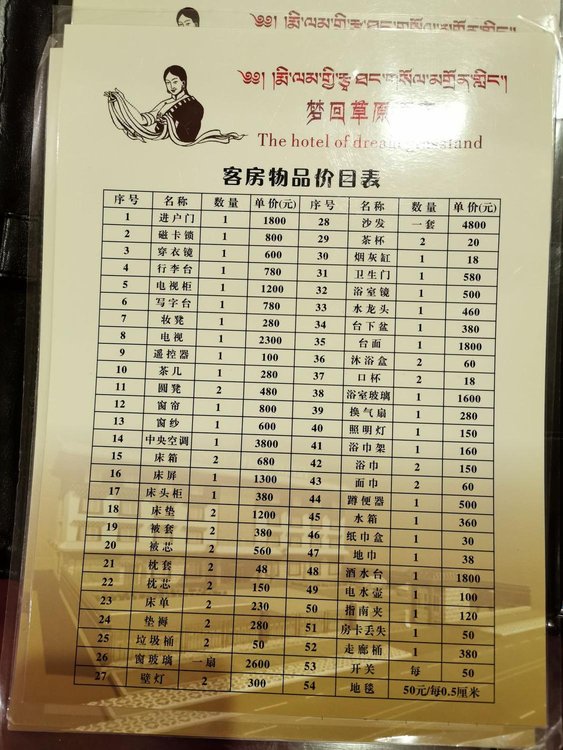 ༄༅། །རྨི་ལམ་གྱི་རྩྭ་ཐང་གསོལ་མགྲོན་གླིང་།
梦回草原
The hotel of dream grassland
客房物品价目表
序号 名称 数量 单价(元) 序号 名称 数量 单价(元)
1 进户门 1 1800 28 沙发 一套 4800
2 磁卡锁 1 800 29 茶杯 2 20
3 穿衣镜 1 600 30 烟灰缸 1 18
4 行李台 1 780 31 卫生门 1 580
5 电视柜 1 1200 32 浴室镜 1 500
6 写字台 1 780 33 水龙头 1 460
7 妆凳 1 280 34 台下盆 1 380
8 电视 1 2300 35 台面 1 1800
9 遥控器 1 100 36 沐浴盒 2 60
10 茶几 1 280 37 口杯 2 18
11 圆凳 2 480 38 浴室玻璃 1 1600
12 窗帘 1 800 39 换气扇 1 280
13 窗纱 1 600 40 照明灯 1 150
14 中央空调 1 3800 41 浴巾架 1 160
15 床箱 2 680 42 浴巾 2 150
16 床屏 1 1300 43 面巾 2 60
17 床头柜 1 380 44 蹲便器 1 500
18 床垫 2 1200 45 水箱 1 360
19 被套 2 380 46 纸巾盒 1 30
20 被芯 2 560 47 地巾 1 38
21 枕套 2 48 48 酒水台 1 1800
22 枕芯 2 150 49 电水壶 1 100
23 床单 2 230 50 指南夹 1 120
24 垫褥 2 280 51 房卡丢失 1 50
25 垃圾桶 2 50 52 走廊桶 1 380
26 窗玻璃 一扇 2600 53 开关 每 50
27 壁灯 2 300 54 地毯 50元/每0.5厘米